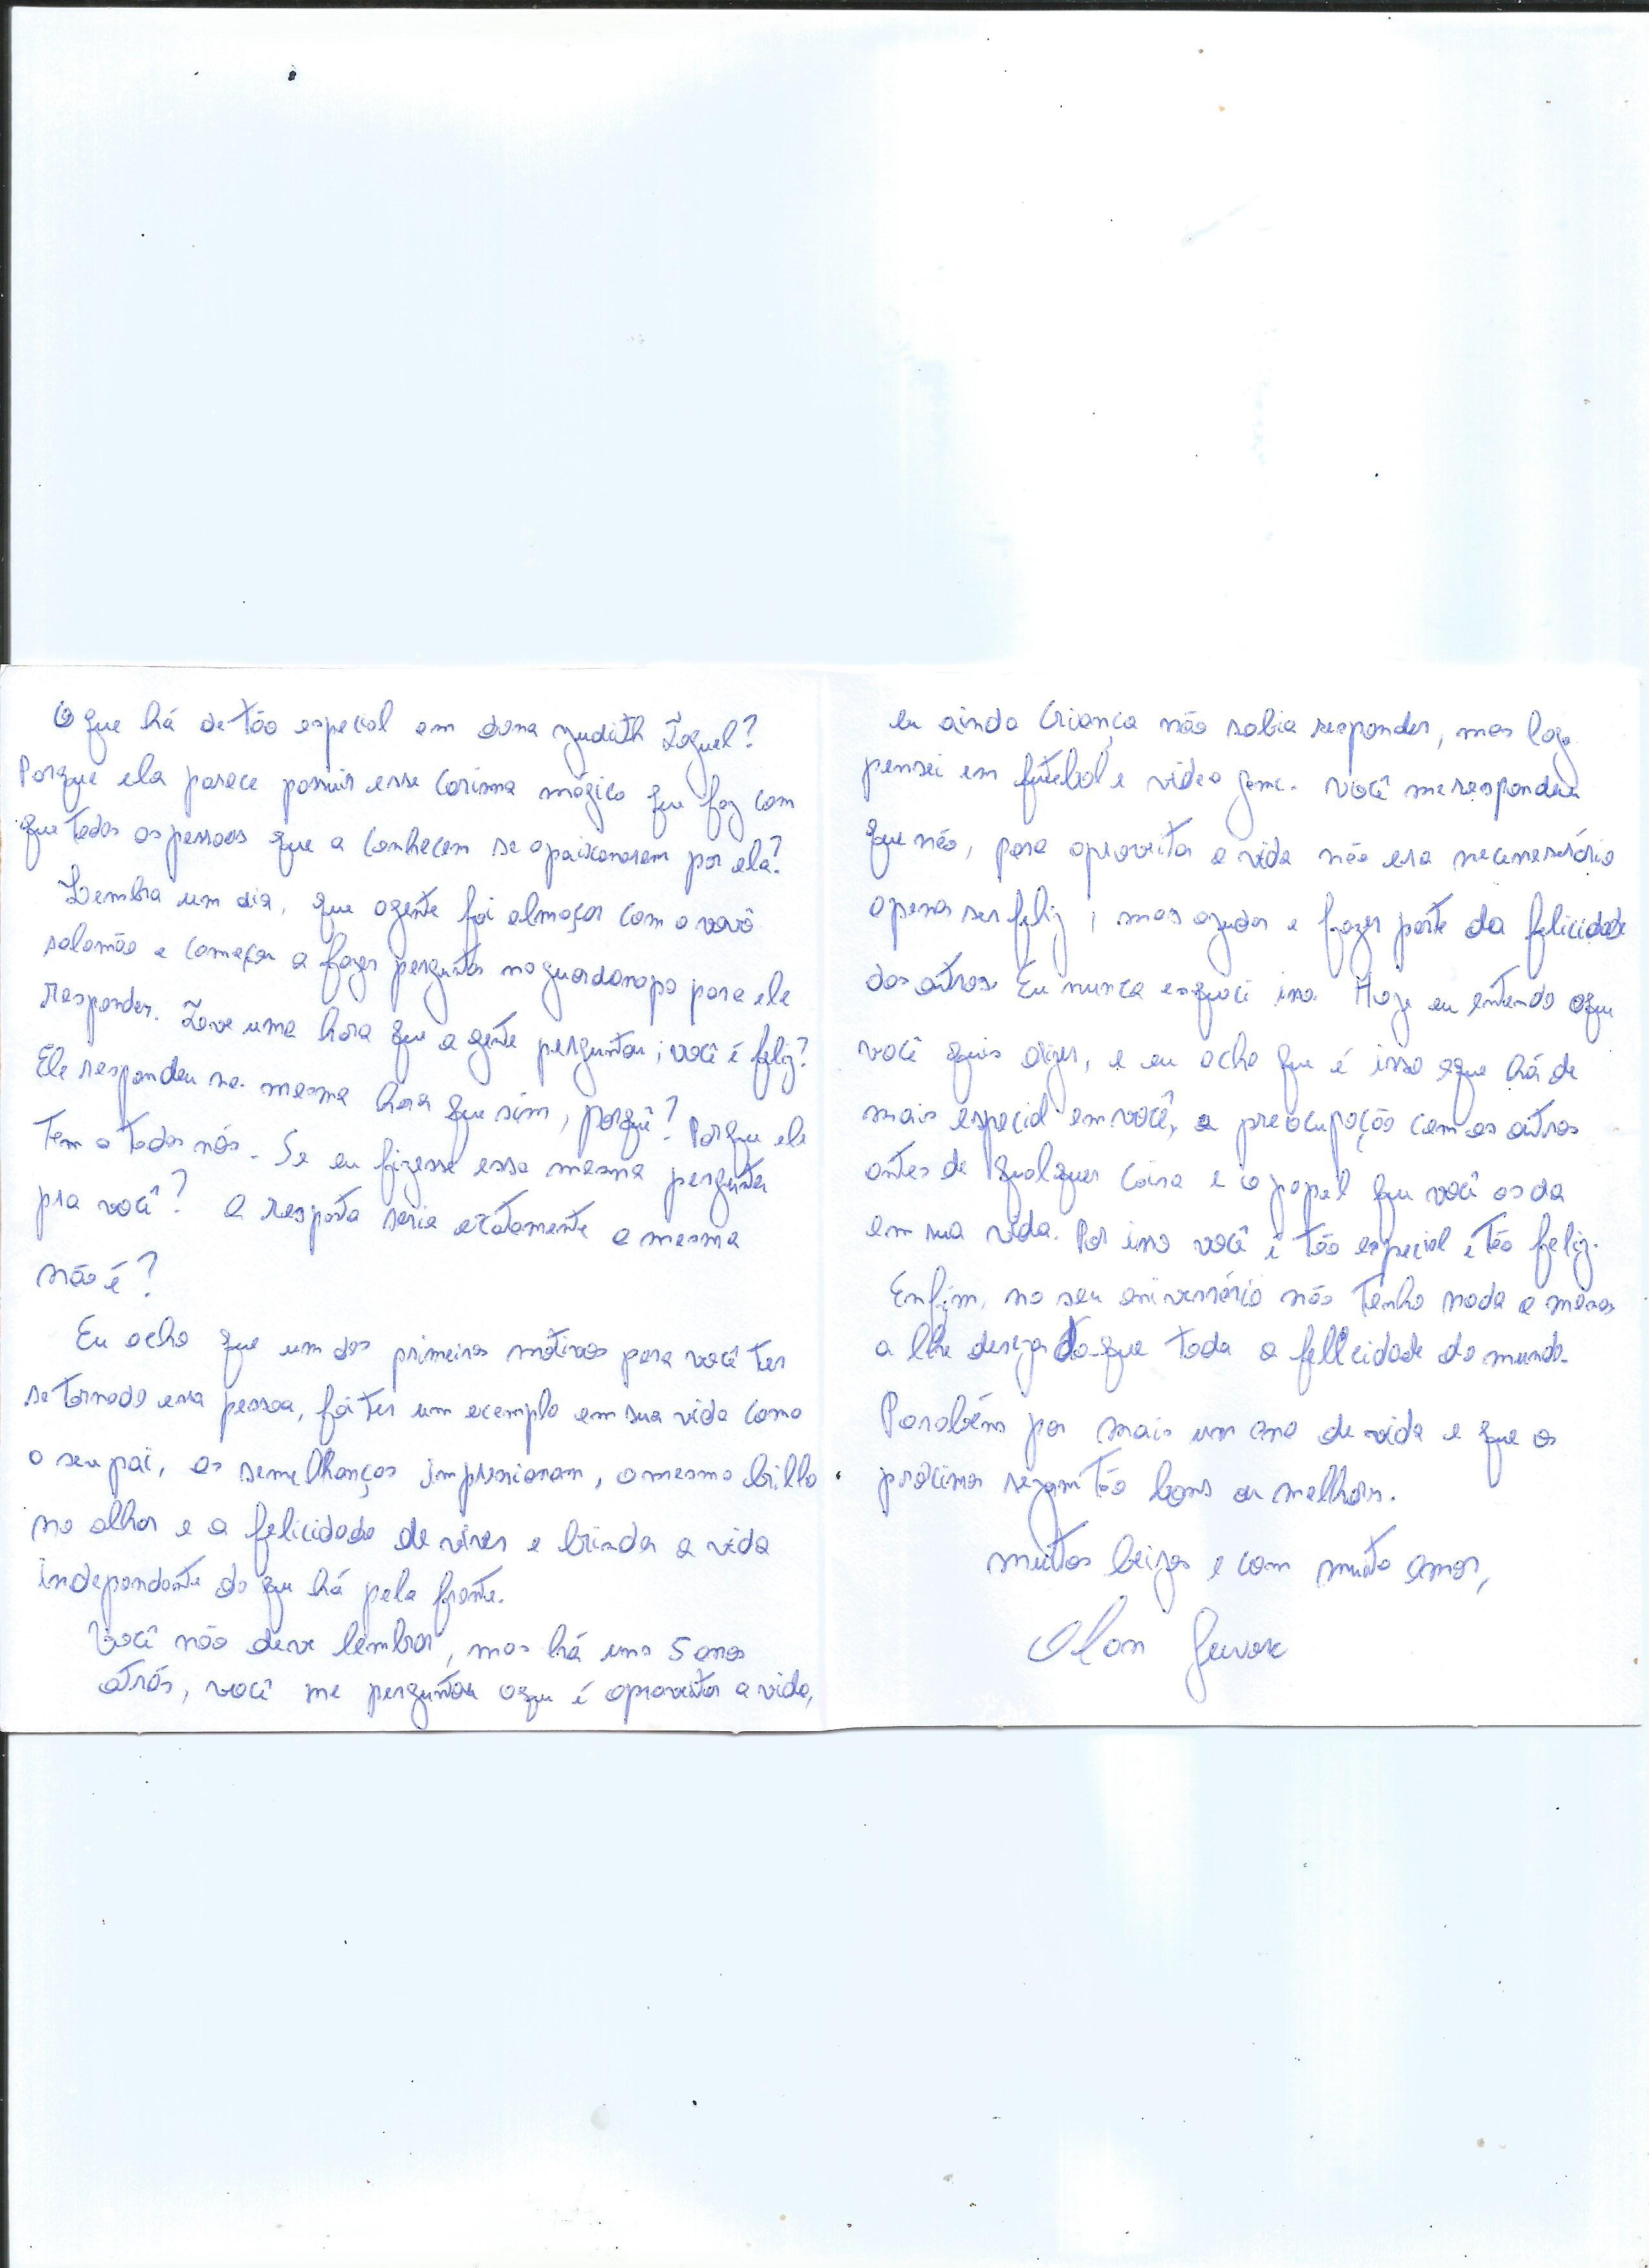 O que há de tão especial em dona Judith Zaguel?
Porque ela parece possuir esse carisma mágico que faz com
que todas as pessoas que a conhecem se apaixonarem por ela?
Lembra um dia, que agente foi almoçar com o vovô
salomão e começou a fazer perguntas no guardanapo para ele
responder. Teve uma hora que a gente perguntou; você é feliz?
Ele respondeu na mesma hora que sim, porquê? Porque ele
tem a todos nós. Se eu fizesse essa mesma pergunta
pra você? A resposta seria exatamente a mesma
não é?
Eu acho que um dos primeiros motivos para você ter
se tornado essa pessoa, foi ter um exemplo em sua vida como
o seu pai, as semelhanças impresionam, o mesmo brilho
no olhar e a felicidade de viver e brindar a vida
independente do que há pela frente.
Você não deve lembrar, mas há uns 5 anos
atrás, você me perguntou oque é aproveitar a vida,
eu ainda criança não sabia responder, mas logo
pensei em futebol e video game. Você me respondeu
que não, para aproveitar a vida não era necessário
apenas ser feliz, mas ajudar e fazer parte da felicidade
dos outros. Eu nunca esqueci isso. Hoje eu entendo oque
você quis dizer, e eu acho que é isso oque há de
mais especial em você, a preocupação com os outros
antes de qualquer coisa e o papel que você os da
em sua vida. Por isso você é tão especial e tão feliz.
Enfim, no seu aniversário não tenho nada a menos
a lhe desejar do que toda a felicidade do mundo.
Parabéns por mais um ano de vida e que os
próximos sejam tão bons ou melhores.
muitos beijos e com muito amor,
Alan